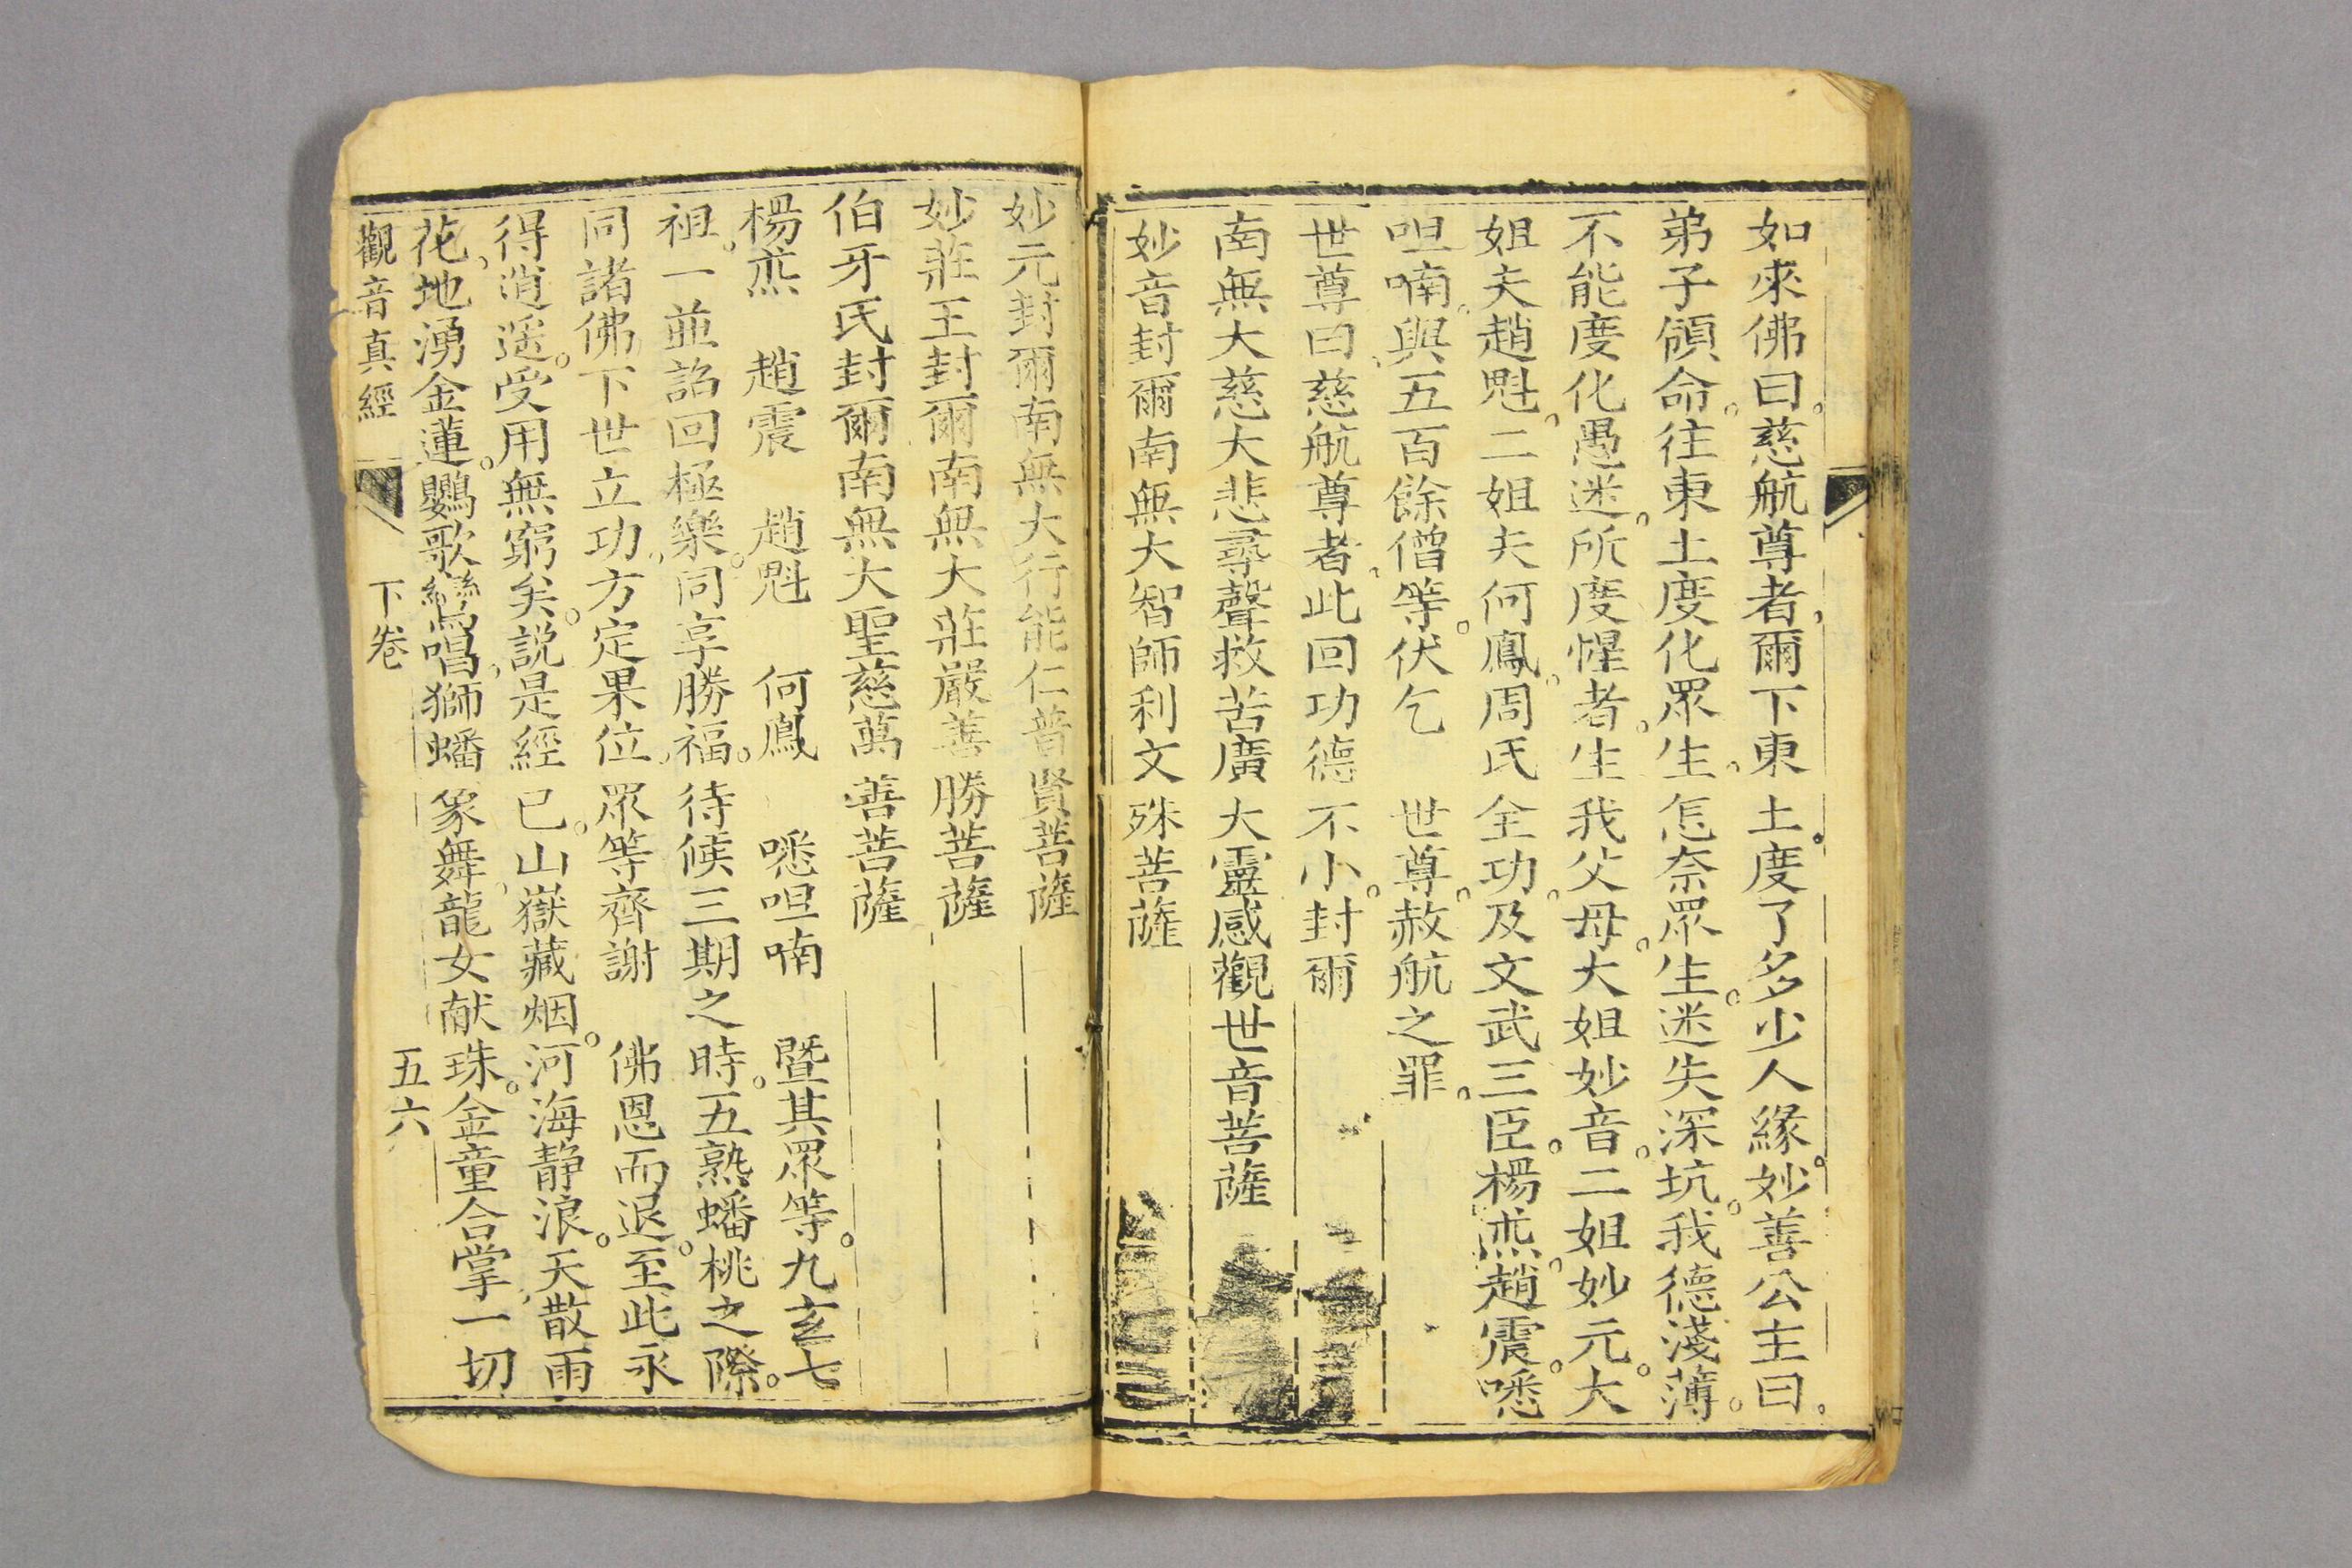 如來佛曰慈航尊者爾下東土度了多少人緣妙善公主曰
弟子領命往東土度化眾生怎奈眾生迷失深坑我德淺薄
不能度化愚迷所度惺者生我父母大姐妙音二姐妙元大
姐夫趙魁二姐夫何鳳周氏全功及文武三臣楊烝趙震㗭
呾喃與五百餘僧等伏乞世尊赦航之罪
世尊曰慈航尊者此回功德不小封爾
南無大慈大悲尋聲救苦廣大靈感觀世音菩薩
妙音封爾南無大智師利文殊菩薩
妙元封爾南無大行能仁普賢菩薩
妙莊王封爾南無大莊嚴善勝菩薩
伯牙氏封爾南無大聖慈萬善菩薩
楊烝 趙震 趙魁 何鳳 㗭呾喃 暨其眾等九玄七
祖一並詔回極樂同享勝福待候三期之時五熟蟠桃之際
同諸佛下世立功方定果位眾等齊謝 佛恩而退至此永
得逍遥受用無窮矣説是經已山嶽藏烟河海静浪天散雨
花地湧金蓮鸚歌鸞唱獅蟠象舞龍女献珠金童合掌一切
觀音真經 下卷 五六